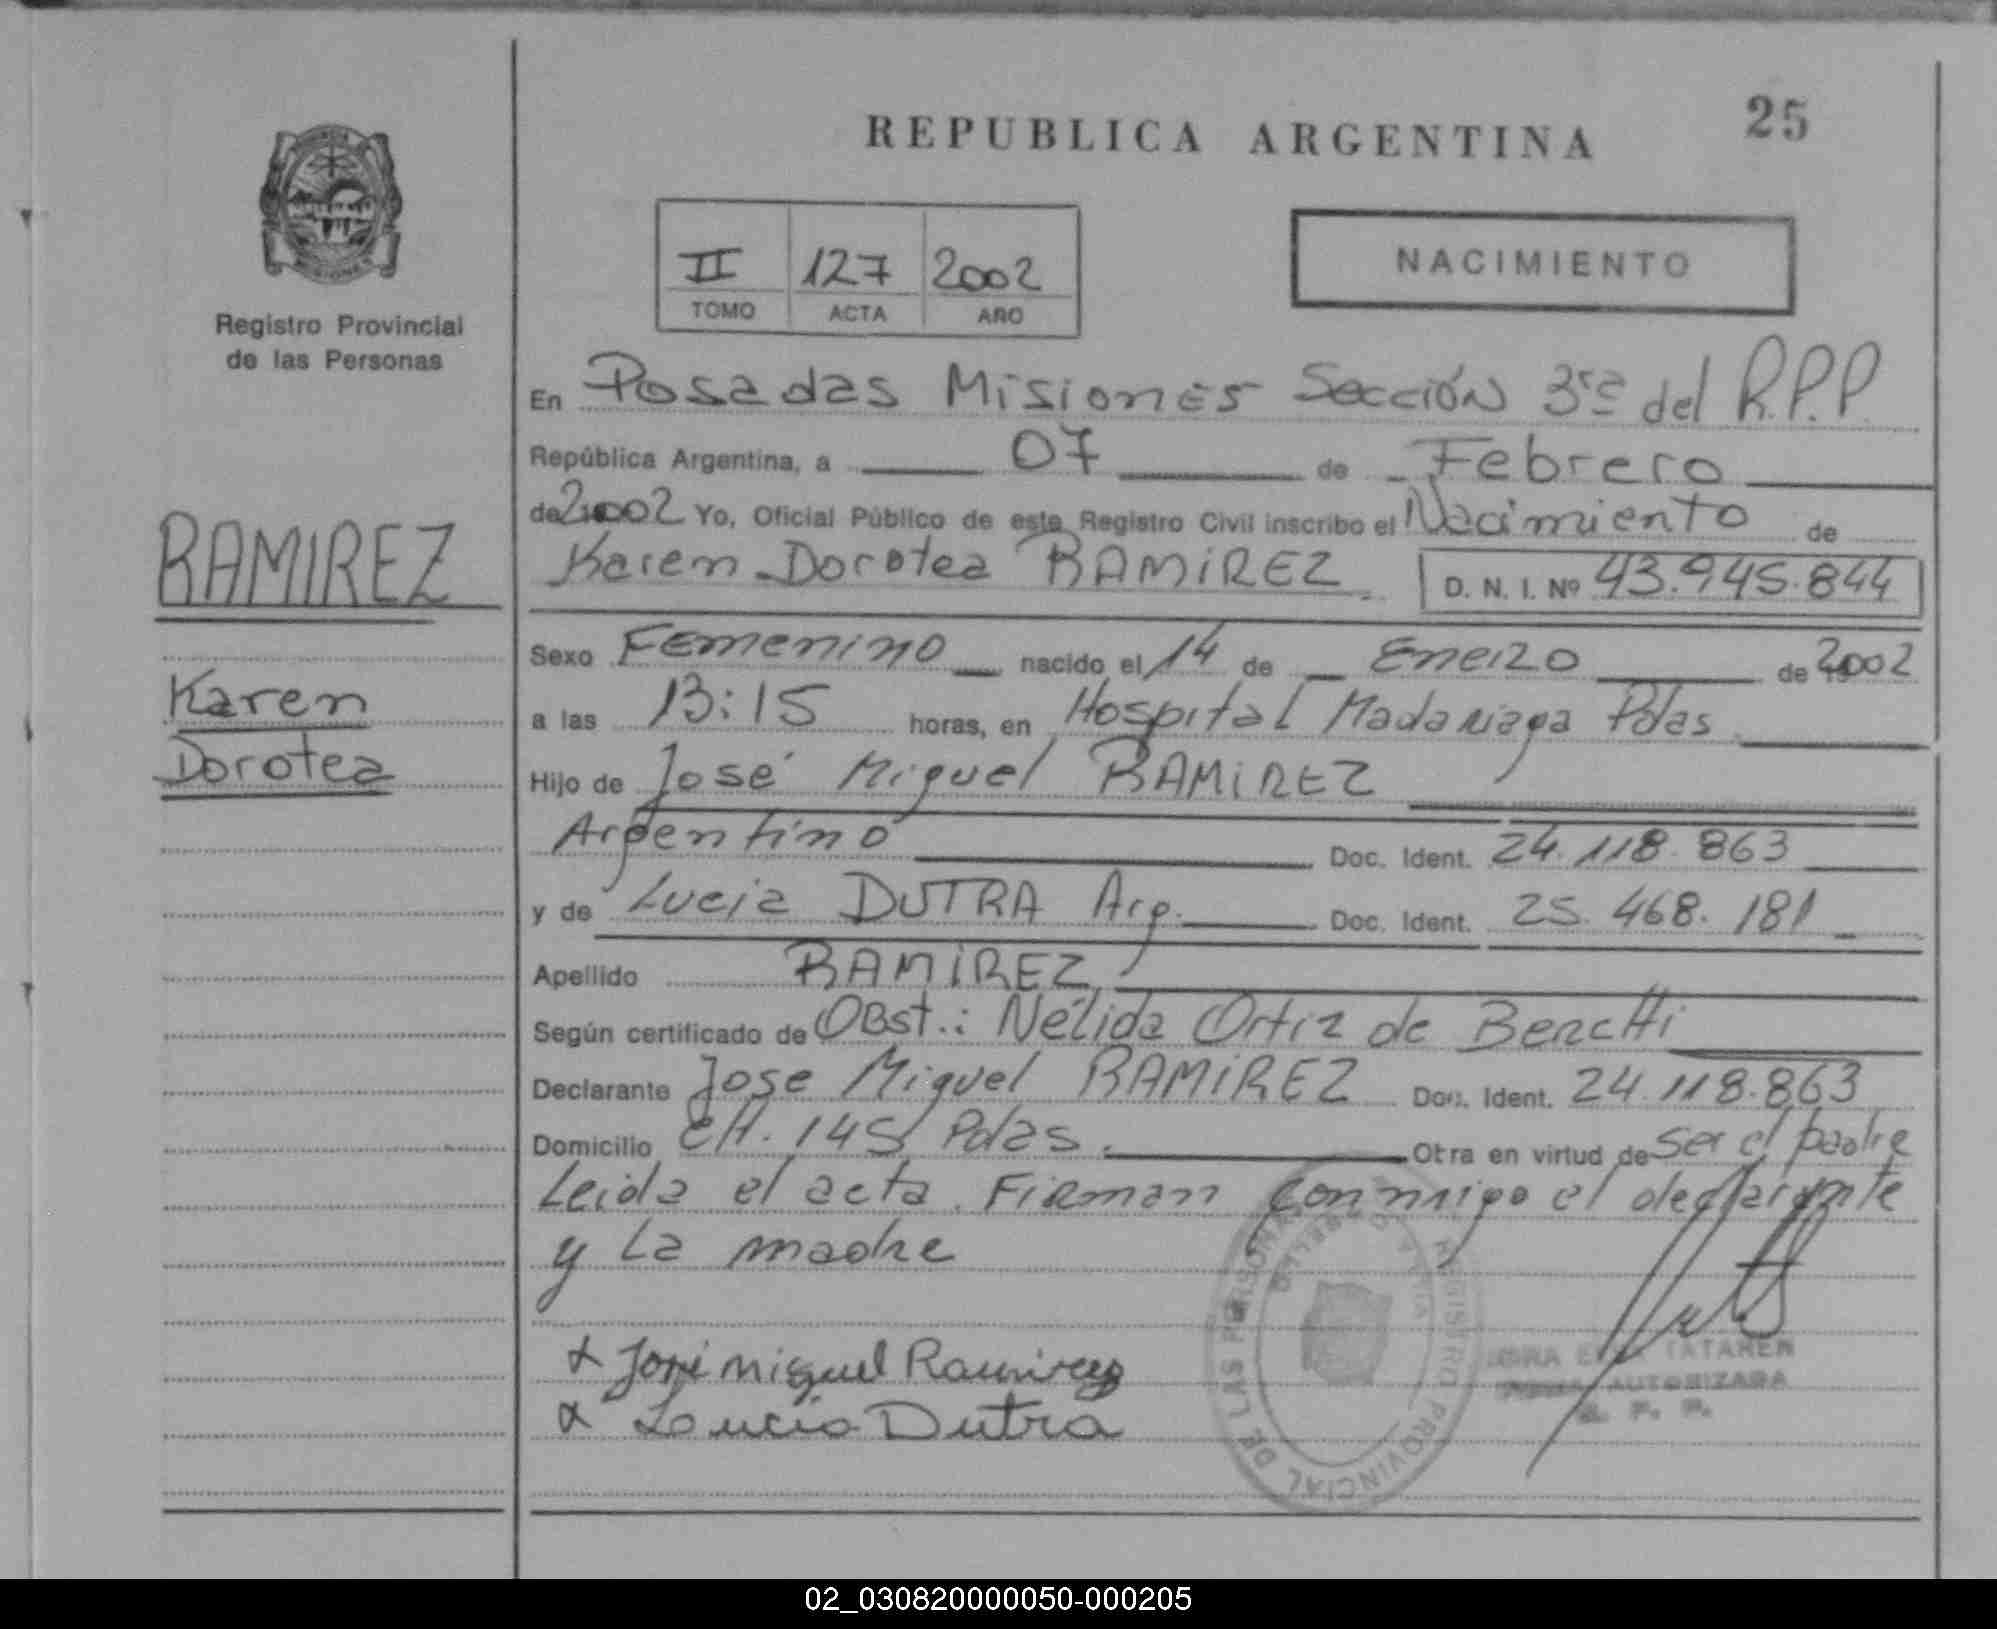 REPUBLICA ARGENTINA
25
II 127 2002
TOMO ACTA AÑO
NACIMIENTO
Registro Provincial
de las Personas
RAMIREZ
Karen
Dorotea
En Posadas Misiones Sección 3ra del R.P.P.
República Argentina, a 07 de Febrero
de 2002 Yo, Oficial Público de este Registro Civil inscribo el Nacimiento de
Karen Dorotea RAMIREZ D. N. I. Nº 43.945.844
Sexo Femenino nacido el 14 de Enero de 2002
a las 13:15 horas, en Hospital Madariaga Pdas
Hijo de José Miguel RAMIREZ
Argentino Doc. Ident. 24.118.863
y de Lucia DUTRA Arg. Doc. Ident. 25.468.181
Apellido RAMIREZ
Según certificado de Obst.: Nélida Ortiz de
Declarante Jose Miguel RAMIREZ Doc. Ident. 24.118.863
Domicilio CH. 145 Pdas. Otra en virtud de ser el padre
Leida el acta. Firman conmigo el declarante
y La madre
x José miguel Ramirez
x Lucia Dutra
REGISTRO PROVINCIAL DE LAS PERSONAS
TATAREN
AUTORIZADA
R. P. P.
02_030820000050-000205